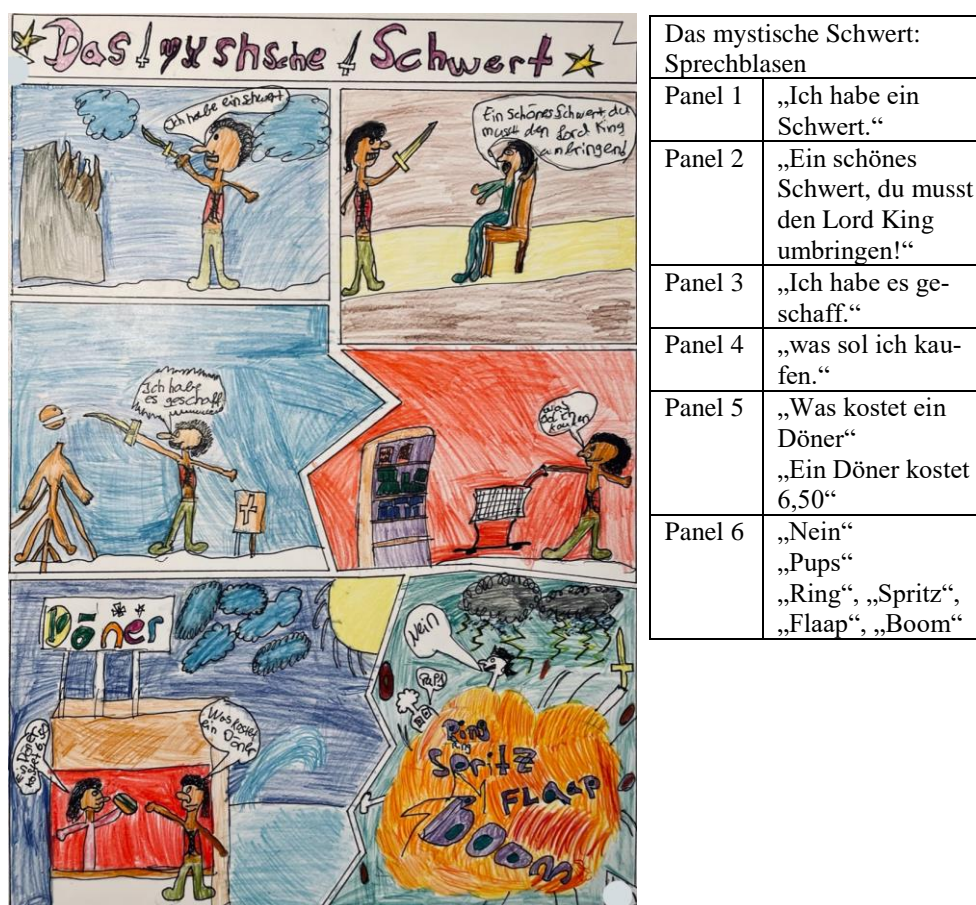 Das mystische Schwert
Ich habe ein Schwert
Ein schönes Schwert, du
musst den Lord King
umbringen!
Ich habe
es geschaff
was
sol ich
kaufen
Döner
Ein Döner
kostet 6,50
Was kostet
ein Döner
Nein
Pups
Ring
Spritz
Flaap
Boom
Das mystische Schwert:
Sprechblasen
Panel 1 „Ich habe ein
Schwert.“
Panel 2 „Ein schönes
Schwert, du musst
den Lord King
umbringen!“
Panel 3 „Ich habe es ge-
schaff.“
Panel 4 „was sol ich kau-
fen.“
Panel 5 „Was kostet ein
Döner“
„Ein Döner kostet
6,50“
Panel 6 „Nein“
„Pups“
„Ring“, „Spritz“,
„Flaap“, „Boom“